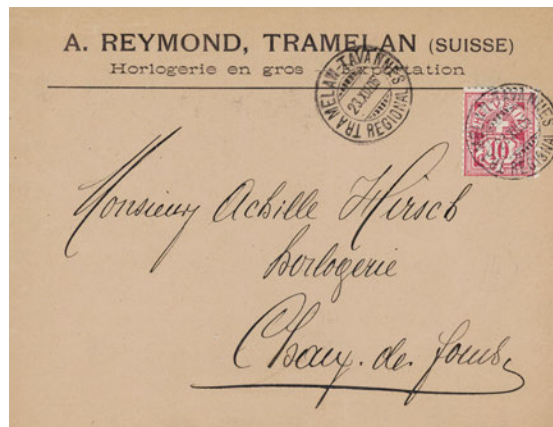 A. REYMOND, TRAMELAN (SUISSE)
Horlogerie en gros
TRAMELAN-TAVANNES
REGIONAL
10
TAVANNES
Monsieur Achille Hirsch
horlogerie
Chaux-de-fonds